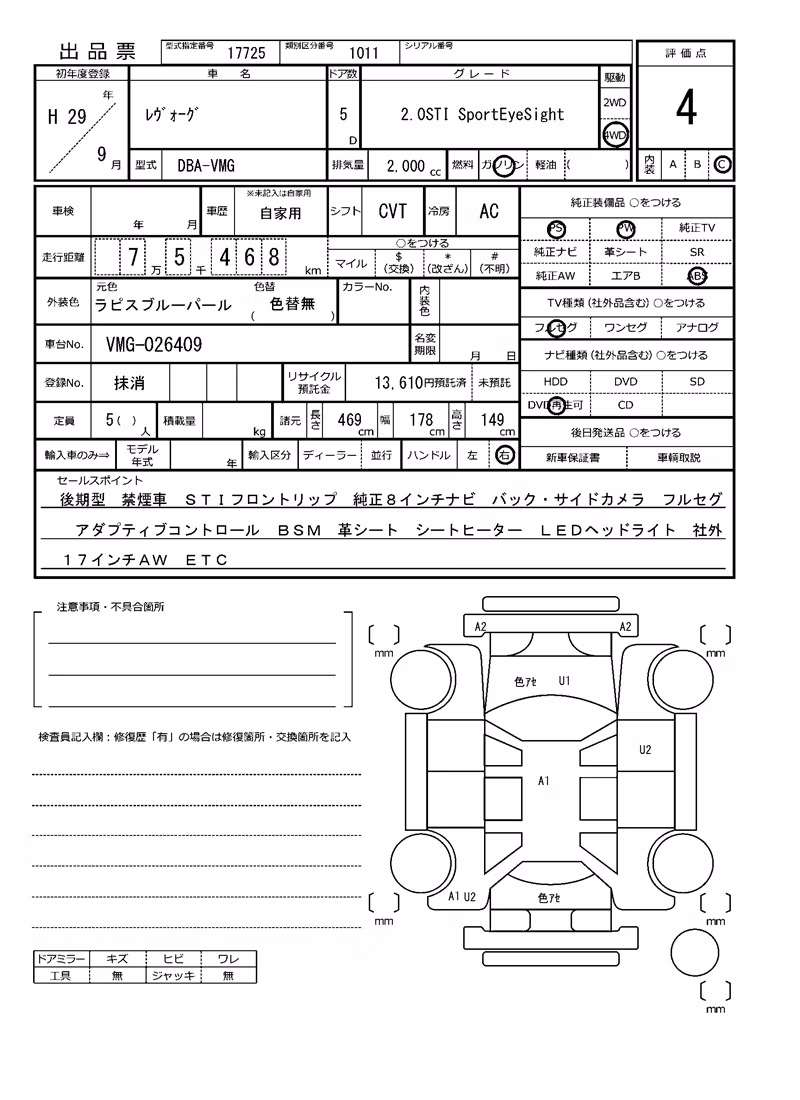 出品票 型式指定番号 17725 類別区分番号 1011 シリアル番号
評価点
初年度登録 車名 ドア数 グレード 駆動
H 29 年 9 月 ﾚｳﾞｫｰｸﾞ 5 D 2.0STI SportEyeSight 2WD 4WD
4
型式 DBA-VMG 排気量 2,000 cc 燃料 ガソリン 軽油 ( ) 内装 A B C
車検 年 月 車歴 ※未記入は自家用 自家用 シフト CVT 冷房 AC
純正装備品 ○をつける
PS PW 純正TV
走行距離 7 万 5 千 4 6 8 km ○をつける
マイル $ (交換) * (改ざん) # (不明)
純正ナビ 革シート SR
純正AW エアB ABS
外装色 元色 ラピスブルーパール 色替 ( 色替無 ) カラーNo. 内装色
TV種類 (社外品含む) ○をつける
フルセグ ワンセグ アナログ
車台No. VMG-026409 名変期限 月 日
ナビ種類 (社外品含む) ○をつける
登録No. 抹消 リサイクル預託金 13,610円預託済 未預託
HDD DVD SD
DVD再生可 CD
定員 5( ) 人 積載量 kg 諸元 長さ 469 cm 幅 178 cm 高さ 149 cm
後日発送品 ○をつける
輸入車のみ⇒ モデル年式 年 輸入区分 ディーラー 並行 ハンドル 左 右
新車保証書 車輌取説
セールスポイント
後期型 禁煙車 STIフロントリップ 純正8インチナビ バック・サイドカメラ フルセグ
アダプティブコントロール BSM 革シート シートヒーター LEDヘッドライト 社外
17インチAW ETC
注意事項・不具合箇所
A2 A2
mm mm
色ｱｾ U1
検査員記入欄：修復歴「有」の場合は修復箇所・交換箇所を記入
U2
A1
A1 U2 色ｱｾ
mm mm
ドアミラー キズ ヒビ ワレ
工具 無 ジャッキ 無
mm